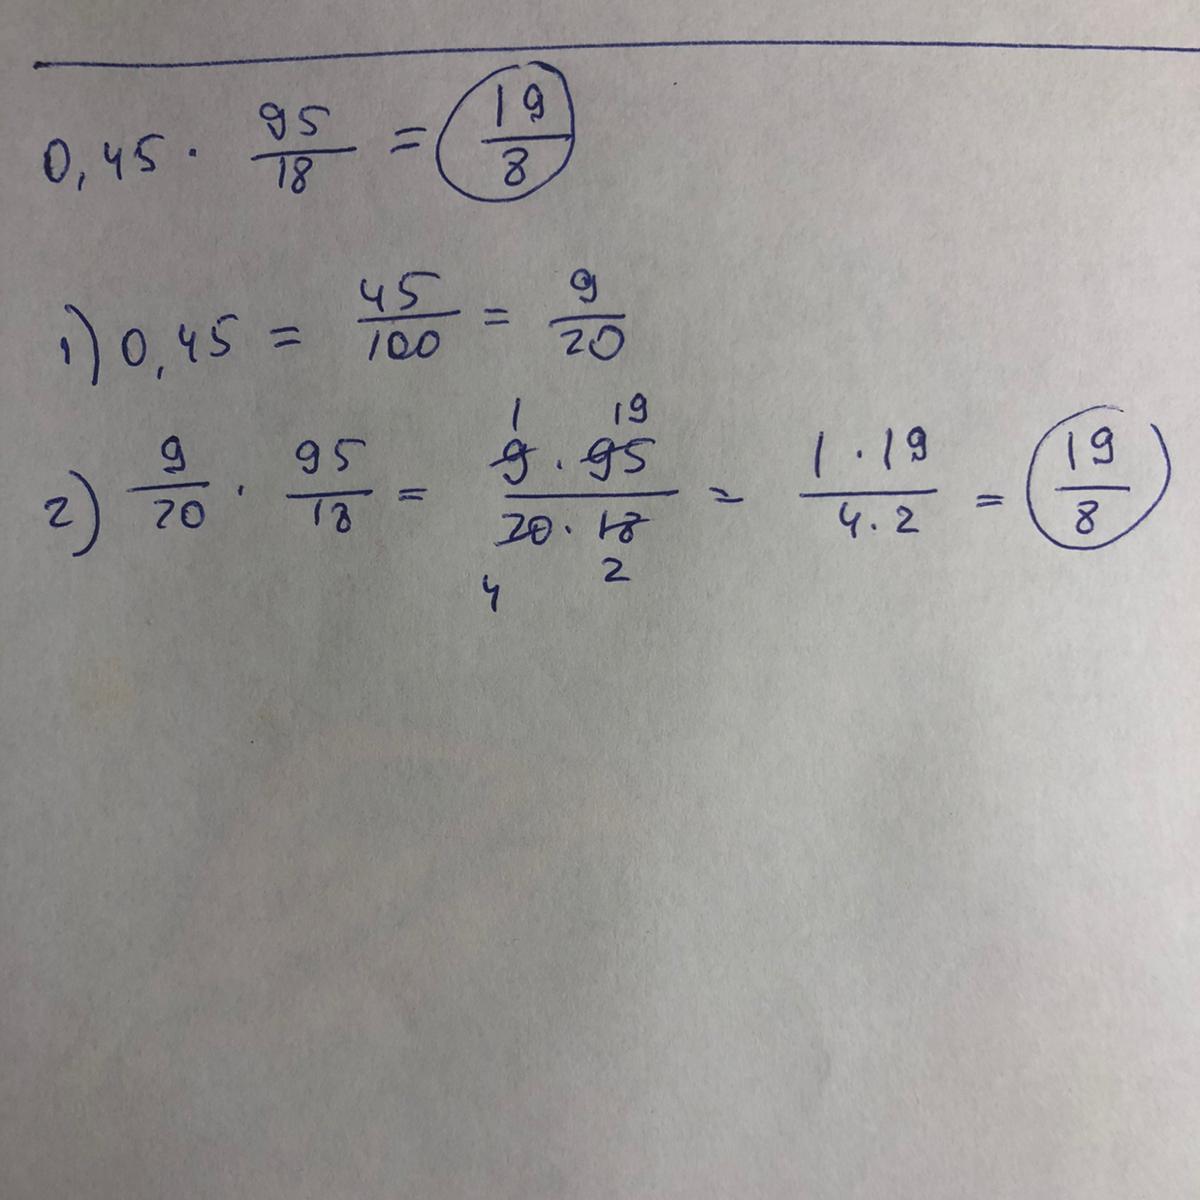 0,45 · 95/18 = 19/8
1) 0,45 = 45/100 = 9/20
2) 9/20 · 95/18 = 9 · 95/20 · 18 = 1 · 19/4 · 2 = 19/8
1 19
4 2